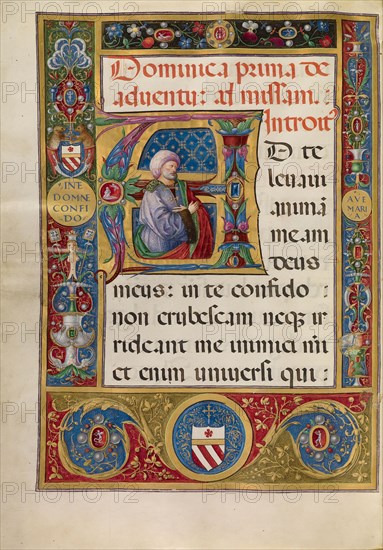 Dominica prima de
adventu: ad missam.
Introit⁹
D te
levavi
animā
meam
deus
meus: in te confido
non erubescam neq3 ir
rideant me inimici mi
et enim universi qui:
·INE·
DOMNE
CONFI
DO
AVE
MARI
A
PHOTO12